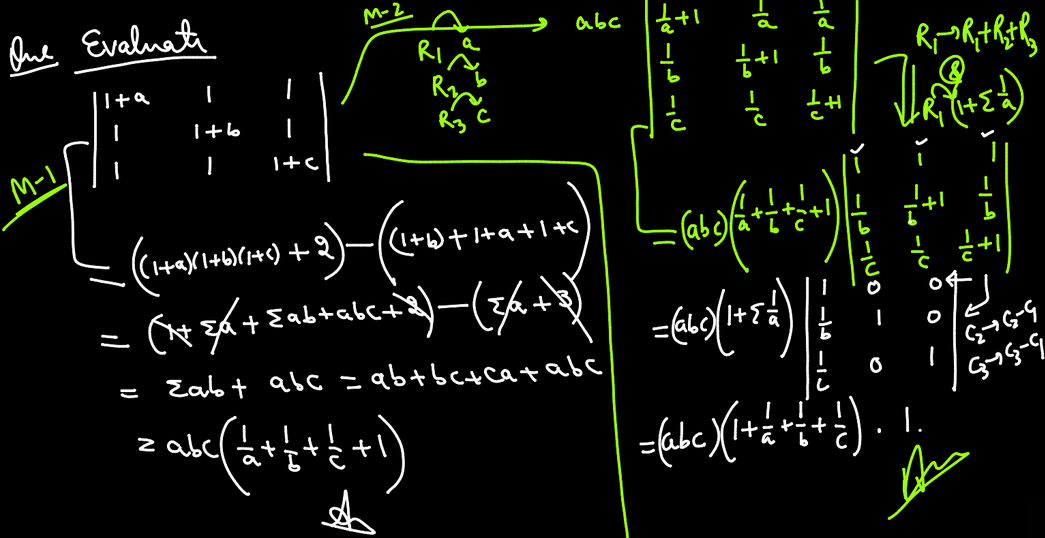 Que Evaluate
|1+a 1 1|
|1 1+b 1|
|1 1 1+c|
M-1
= ((1+a)(1+b)(1+c) + 2) − ((1+b) + 1+a + 1+c)
= (1 + Σa + Σab + abc + 2) − (Σa + 3)
= Σab + abc = ab+bc+ca+abc
= abc(1/a + 1/b + 1/c + 1)
M-2
R1 a
R2 b
R3 c
abc |1/a+1 1/a 1/a|
|1/b 1/b+1 1/b|
|1/c 1/c 1/c+1|
R1→R1+R2+R3
&
R1 (1+Σ1/a)
= (abc)(1/a + 1/b + 1/c + 1) |1 1 1|
|1/b 1/b+1 1/b|
|1/c 1/c 1/c+1|
= (abc)(1+Σ1/a) |1 0 0|
|1/b 1 0|
|1/c 0 1|
C2→C2−C1
C3→C3−C1
= (abc)(1 + 1/a + 1/b + 1/c) . 1.